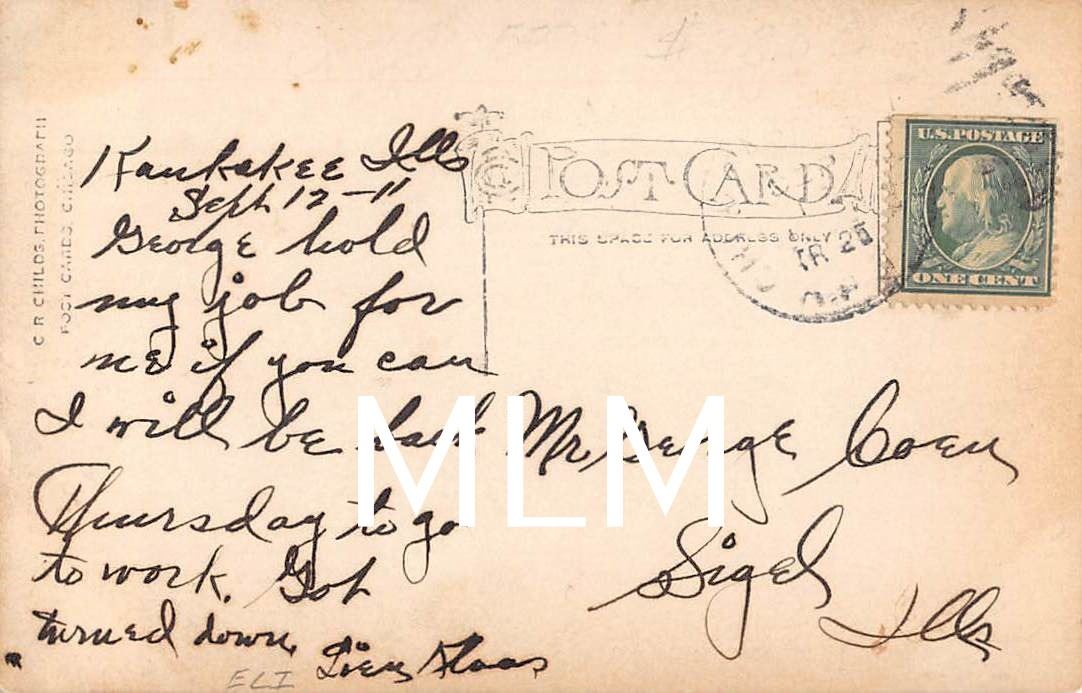 C R CHILDS, PHOTOGRAPH
POST CARDS, CHICAGO
POST CARD
THIS SPACE FOR ADDRESS ONLY
U.S. POSTAGE
ONE CENT
Kankakee Ills
Sept 12-11
George hold
my job for
me if you can
I will be back
Thursday to go
to work. Got
turned down.
Mr. George Coen
Sigel
Ills
ELI
MLM